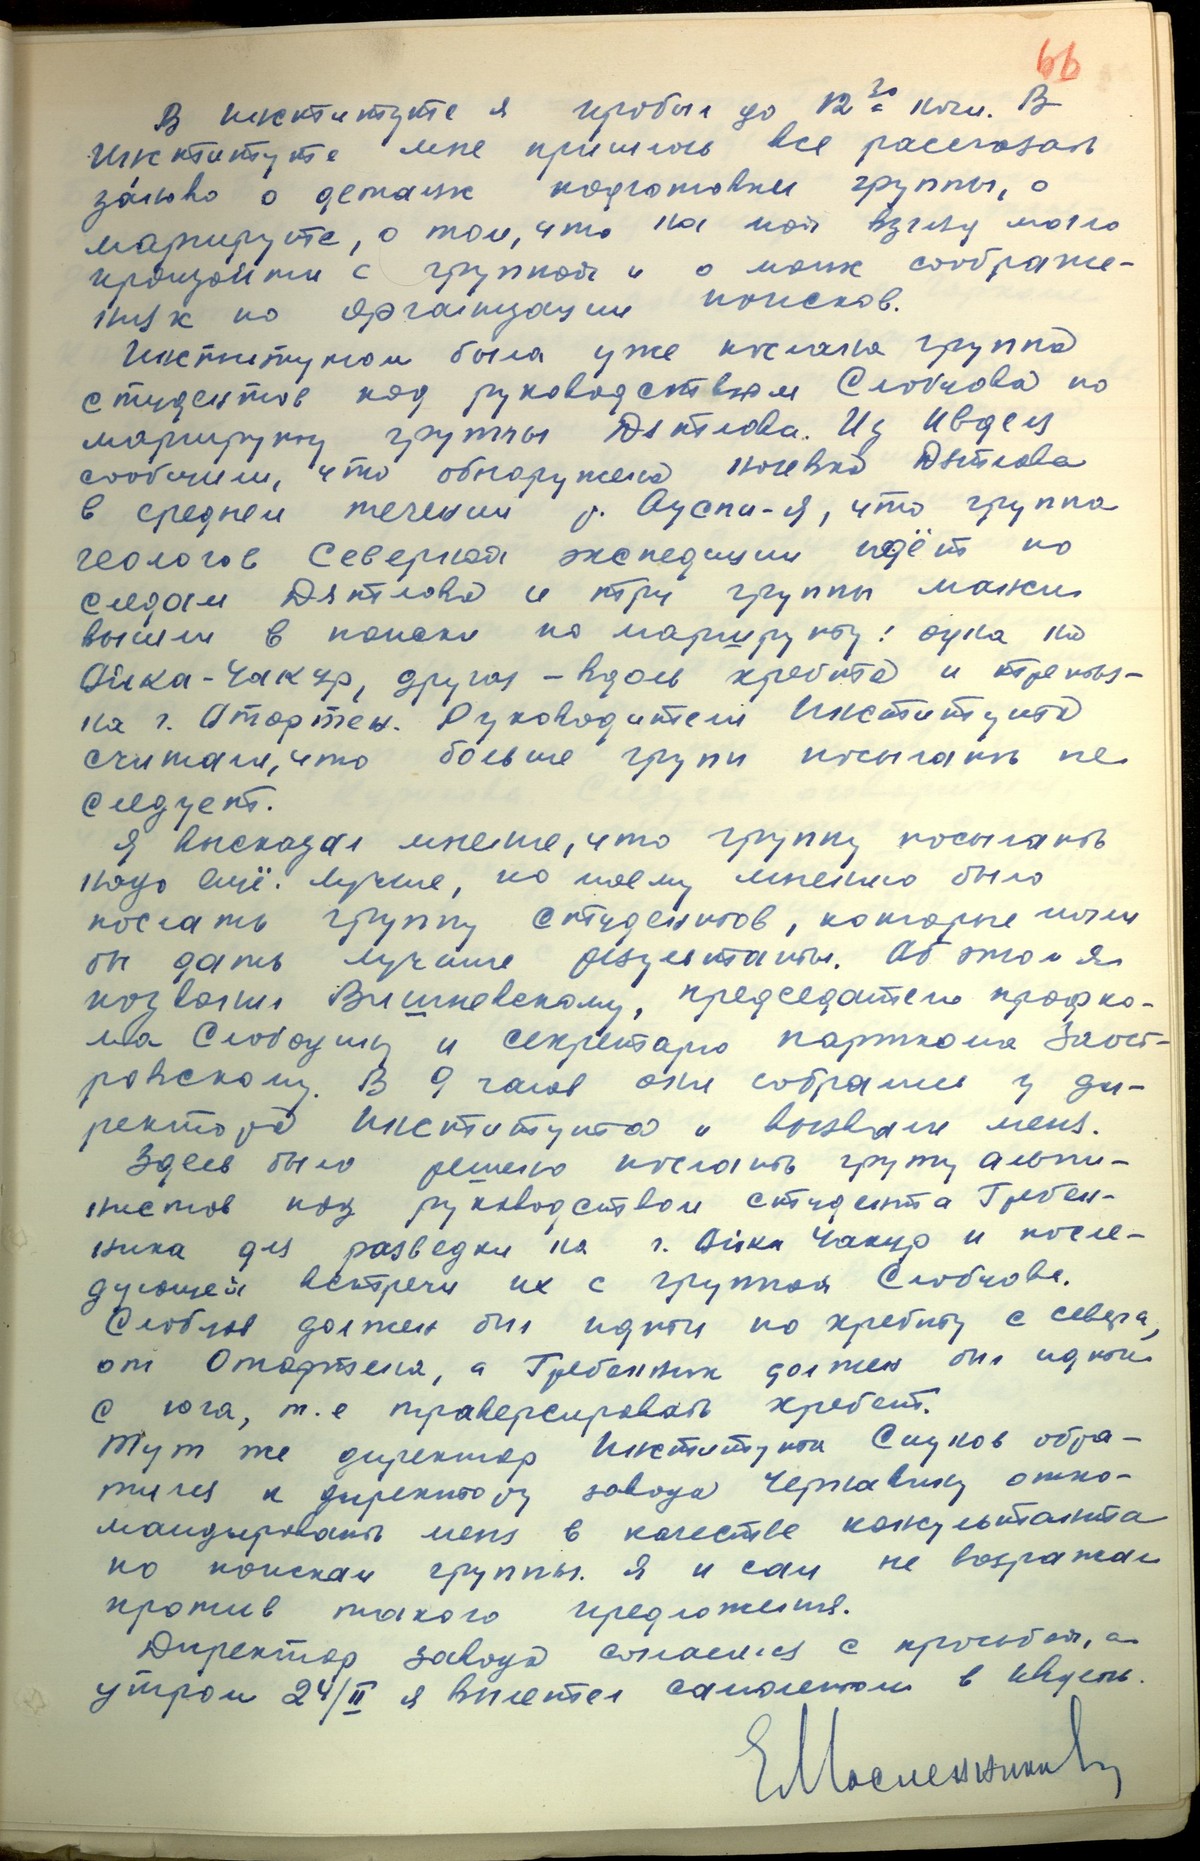 66
В Институте я пробыл до 12 30 ночи. В
Институте мне пришлось все рассказать
заново о деталях подготовки группы, о
маршруте, о том, что на мой взгляд могло
произойти с группой и о моих соображе-
ниях по организации поисков.
Институтом была уже послана группа
студентов под руководством Слобцова по
маршруту группы Дятлова. Из Ивделя
сообщили, что обнаружена ночевка Дятлова
в среднем течении р. Ауспи-я, что группа
геологов Северной экспедиции идёт по
следам Дятлова и три группы манси
вышли в поиски по маршруту: одна на
Ойка-Чакур, другая - вдоль хребта и третья-
на г. Отортен. Руководители Института
считали, что больше групп посылать не
следует.
Я высказал мнение, что группу посылать
надо ещё. Лучше, по моему мнению было
послать группу студентов, которые могли
бы дать лучшие результаты. Об этом я
позвонил Вишневскому, председателю профко-
ма Слободину и секретарю парткома Заост-
ровскому. В 9 часов они собрались у ди-
ректора Института и вызвали меня.
Здесь было решено послать группу альпи-
нистов под руководством студента Гребен-
ника для разведки на г. Ойка Чакур и после-
дующей встречи их с группой Слобцова.
Слобцов должен был идти по хребту с севера,
от Отортена, а Гребенник должен был идти
с юга, т.е траверсировать хребет.
Тут же директор Института Сиунов обра-
тился к директору завода Чернавину отко-
мандировать меня в качестве консультанта
по поискам группы. Я и сам не возражал
против такого предложения.
Директор завода согласился с просьбой, а
утром 24/II я вылетел самолетом в Ивдель.
ЕМасленников